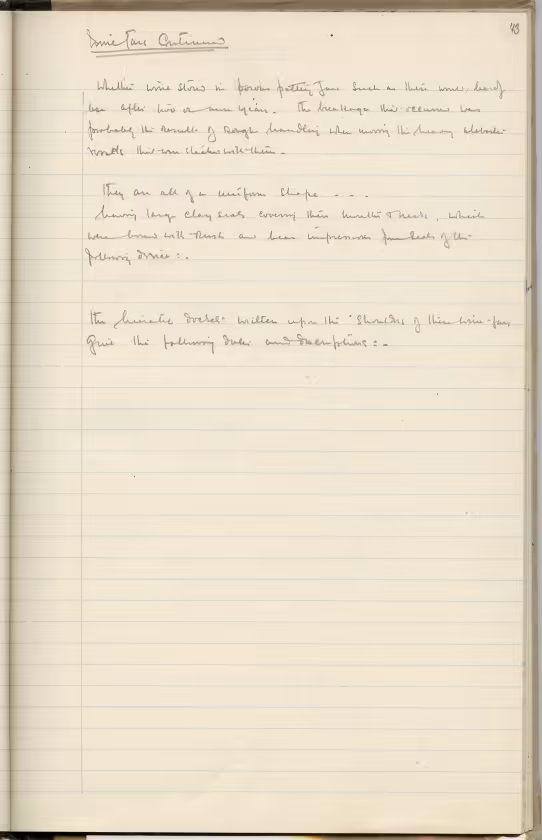 43
Wine Jars Continued
Whether wine stored in porous pottery Jars such as these would be of
use after two or more years. The breakage that occurred was
probably the result of rough handling when moving the heavy alabaster
vessels that were stacked with them.
They are all of a uniform shape . . .
having large clay seals covering their mouths & necks, which
were bound with rush and bear impressions from seals of the
following device :.
The hieratic dockets written upon the shoulders of these wine-jars
give the following dates and descriptions :-